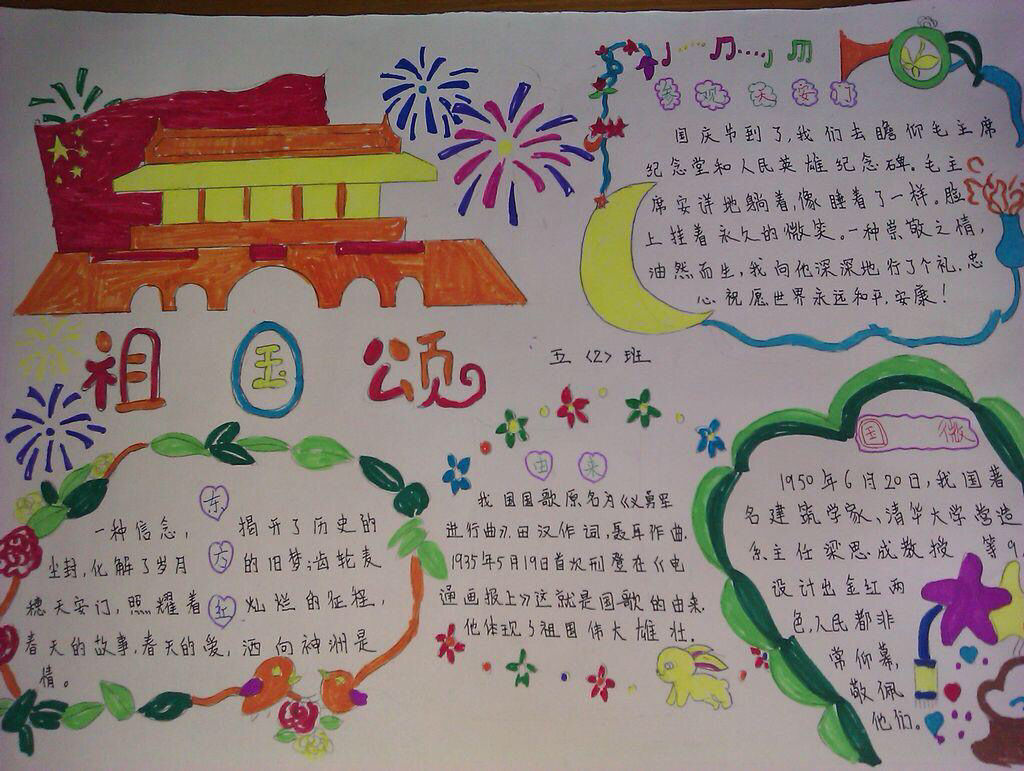 祖国颂
五〈2〉班
参观天安门
国庆节到了,我们去瞻仰毛主席
纪念堂和人民英雄纪念碑。毛主
席安详地躺着,像睡着了一样。脸
上挂着永久的微笑。一种崇敬之情,
油然而生,我向他深深地行了个礼.忠
心祝愿世界永远和平,安康!
东方红
一种信念,揭开了历史的
尘封,化解了岁月的旧梦;齿轮麦
穗天安门,照耀着灿烂的征程,
春天的故事.春天的爱,洒向神洲是
情。
由来
我国国歌原名为《义勇军
进行曲》.田汉作词,聂耳作曲.
1935年5月19日首次刑登在《电
通画报上》这就是国歌的由来.
他体现了祖国伟大雄壮.
国微
1950年6月20日,我国著
名建筑学家、清华大学营造
系主任梁思成教授等9
设计出金红两
色,人民都非
常仰幕,
敬佩
他们。